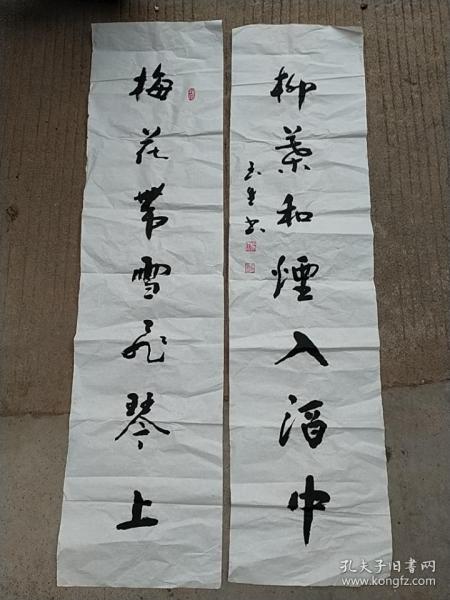 梅花帶雪飛琴上
柳葉和煙入酒中
孔夫子旧书网
www.kongfz.com